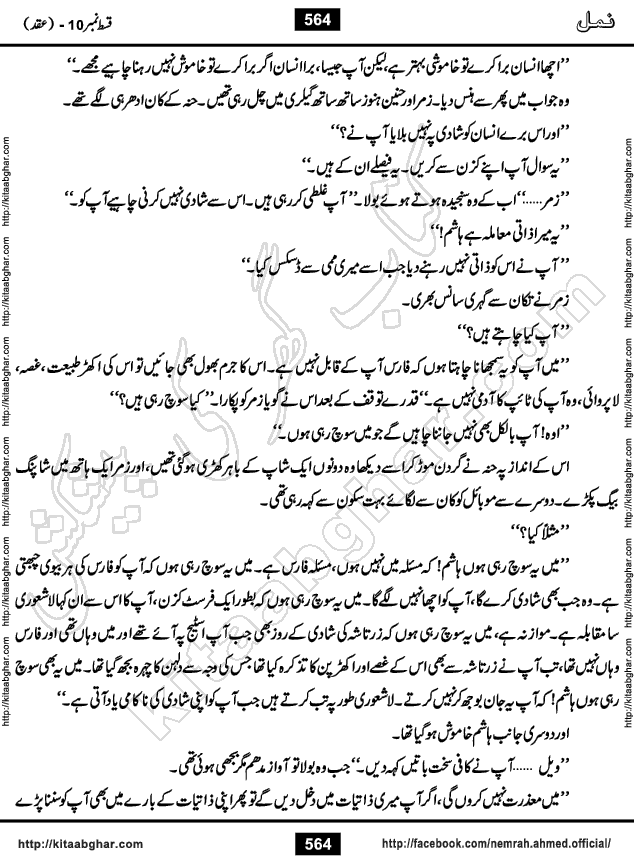 نمل 564 قسط نمبر 10 - (عقد)
’’اچھا انسان برا کرے تو خاموشی بہتر ہے، لیکن آپ جیسا، برا انسان اگر برا کرے تو خاموش نہیں رہنا چاہیے مجھے۔‘‘
وہ جواب میں پھر سے ہنس دیا۔ زمر اور حنین ہنوز ساتھ ساتھ گیلری میں چل رہی تھیں۔ حنہ کے کان ادھر ہی لگے تھے۔
’’اور اس برے انسان کو شادی پہ نہیں بلایا آپ نے؟‘‘
’’یہ سوال آپ اپنے کزن سے کریں۔ یہ فیصلے ان کے ہیں۔‘‘
’’زمر……‘‘ اب کے وہ سنجیدہ ہوتے ہوئے بولا۔ ’’آپ غلطی کر رہی ہیں۔ اس سے شادی نہیں کرنی چاہیے آپ کو۔‘‘
’’یہ میرا ذاتی معاملہ ہے ہاشم!‘‘
’’آپ نے اس کو ذاتی نہیں رہنے دیا جب اسے میری ممی سے ڈسکس کیا۔‘‘
زمر نے تکان سے گہری سانس بھری۔
’’آپ کیا چاہتے ہیں؟‘‘
’’میں آپ کو یہ سمجھانا چاہتا ہوں کہ فارس آپ کے قابل نہیں ہے۔ اس کا جرم بھول بھی جائیں تو اس کی اکھڑ طبیعت، غصہ،
لا پروائی، وہ آپ کی ٹائپ کا آدمی نہیں ہے۔‘‘ قدرے توقف کے بعد اس نے گویا زمر کو پکارا۔ ’’کیا سوچ رہی ہیں؟‘‘
’’اوہ! آپ بالکل بھی نہیں جاننا چاہیں گے جو میں سوچ رہی ہوں۔‘‘
اس کے انداز پہ حنہ نے گردن موڑ کر اسے دیکھا وہ دونوں ایک شاپ کے باہر کھڑی ہو گئی تھیں، اور زمر ایک ہاتھ میں شاپنگ
بیگ پکڑے۔ دوسرے سے موبائل کو کان سے لگائے بہت سکون سے کہہ رہی تھی۔
’’مثلاً کیا؟‘‘
’’میں یہ سوچ رہی ہوں ہاشم! کہ مسئلہ میں نہیں ہوں، مسئلہ فارس ہے۔ میں یہ سوچ رہی ہوں کہ آپ کو فارس کی ہر بیوی چبھتی
ہے۔ وہ جب بھی شادی کرے گا، آپ کو اچھا نہیں لگے گا۔ میں یہ سوچ رہی ہوں کہ بطور ایک فرسٹ کزن، آپ کا اس سے ان کہا لاشعوری
سا مقابلہ ہے۔ موازنہ ہے، میں یہ سوچ رہی ہوں کہ زرتاشہ کی شادی کے روز بھی جب آپ اسٹیج پہ آئے تھے اور میں وہاں تھی اور فارس
وہاں نہیں تھا، تب آپ نے زرتاشہ سے بھی اس کے غصے اور اکھڑ پن کا تذکرہ کیا تھا جس کی وجہ سے دلہن کا چہرہ بجھ گیا تھا۔ میں یہ بھی سوچ
رہی ہوں ہاشم! کہ آپ یہ جان بوجھ کر نہیں کرتے۔ لاشعوری طور پہ تب کرتے ہیں جب آپ کو اپنی شادی کی ناکامی یاد آتی ہے۔‘‘
اور دوسری جانب ہاشم خاموش ہو گیا تھا۔
’’ویل …… آپ نے کافی سخت باتیں کہہ دیں۔‘‘ جب وہ بولا تو آواز مدھم مگر بجھی ہوئی تھی۔
’’میں معذرت نہیں کروں گی، اگر آپ میری ذاتیات میں دخل دیں گے تو پھر اپنی ذاتیات کے بارے میں بھی آپ کو سننا پڑے
http://kitaabghar.com 564 http://facebook.com/nemrah.ahmed.official/
http://kitaabghar.com http://kitaabghar.com http://kitaabghar.com http://kitaabghar.com http://kitaabghar.com http://kitaabghar.com
http://kitaabghar.com http://kitaabghar.com http://kitaabghar.com http://kitaabghar.com http://kitaabghar.com http://kitaabghar.com
کتاب گھر کی پیشکش
kitaabghar.com